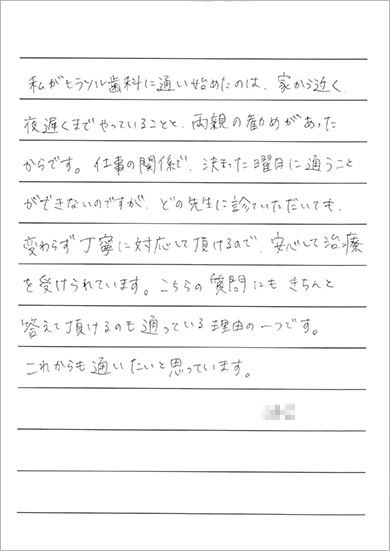 私がヒラソル歯科に通い始めたのは、家から近く、
夜遅くまでやっていることと、両親の勧めがあった
からです。仕事の関係で、決まった曜日に通うこと
ができないのですが、どの先生に診ていただいても、
変わらず丁寧に対応して頂けるので、安心して治療
を受けられています。こちらの質問にもきちんと
答えて頂けるのも通っている理由の一つです。
これからも通いたいと思っています。